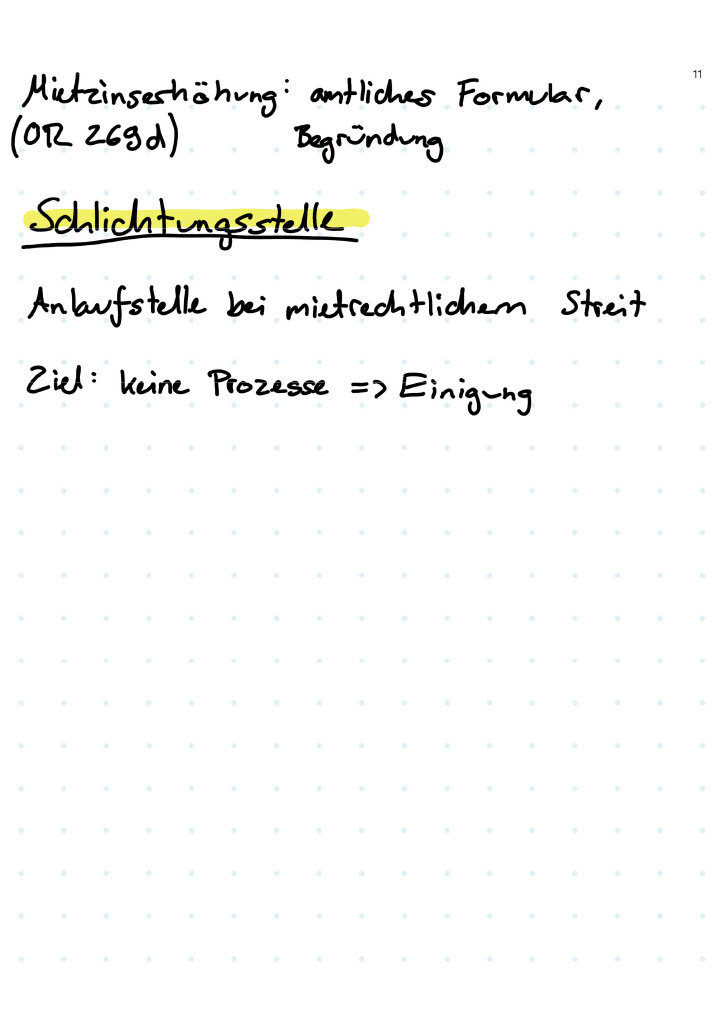 11
Mietzinserhöhung: amtliches Formular,
(OR 269d) Begründung
Schlichtungsstelle
Anlaufstelle bei mietrechtlichem Streit
Ziel: keine Prozesse => Einigung